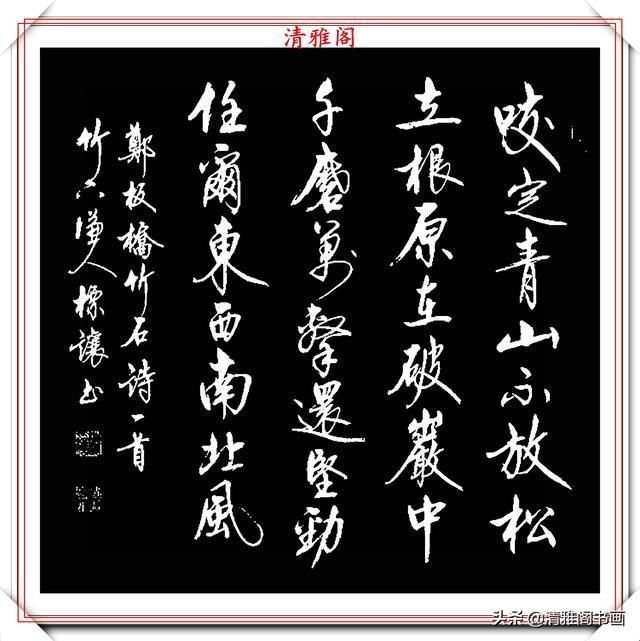 清雅阁
咬定青山不放松
立根原在破巖中
千磨萬擊還堅勁
任爾東西南北風
鄭板橋竹石詩一首
竹下謙人標讓书
头条@清雅阁书画